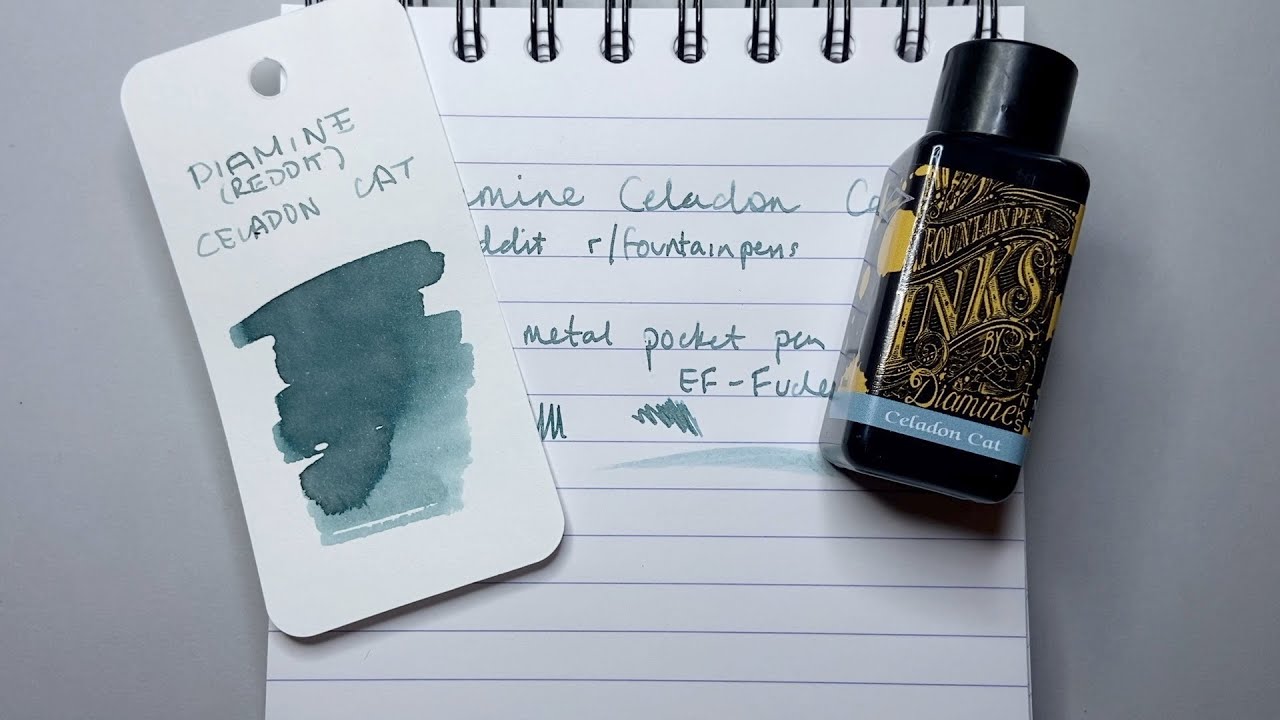 DIAMINE
(REDDIT)
CELADON CAT
mine Celadon Ca
ddit r/fountainpens
metal pocket pen
EF-Fude
FOUNTAIN PEN
INKS
BY
Diamine
INKS
Celadon Cat